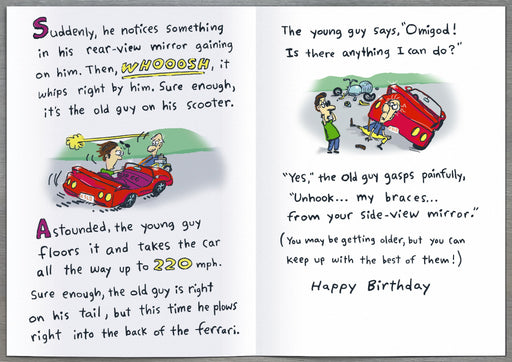 Suddenly, he notices something
in his rear-view mirror gaining
on him. Then, WHOOOSH, it
whips right by him. Sure enough,
it's the old guy on his scooter.
Astounded, the young guy
floors it and takes the car
all the way up to 220 mph.
Sure enough, the old guy is right
on his tail, but this time he plows
right into the back of the ferrari.
The young guy says, "Omigod!
Is there anything I can do?"
"Yes," the old guy gasps painfully,
"Unhook... my braces...
from your side-view mirror."
(You may be getting older, but you can
keep up with the best of them!)
Happy Birthday